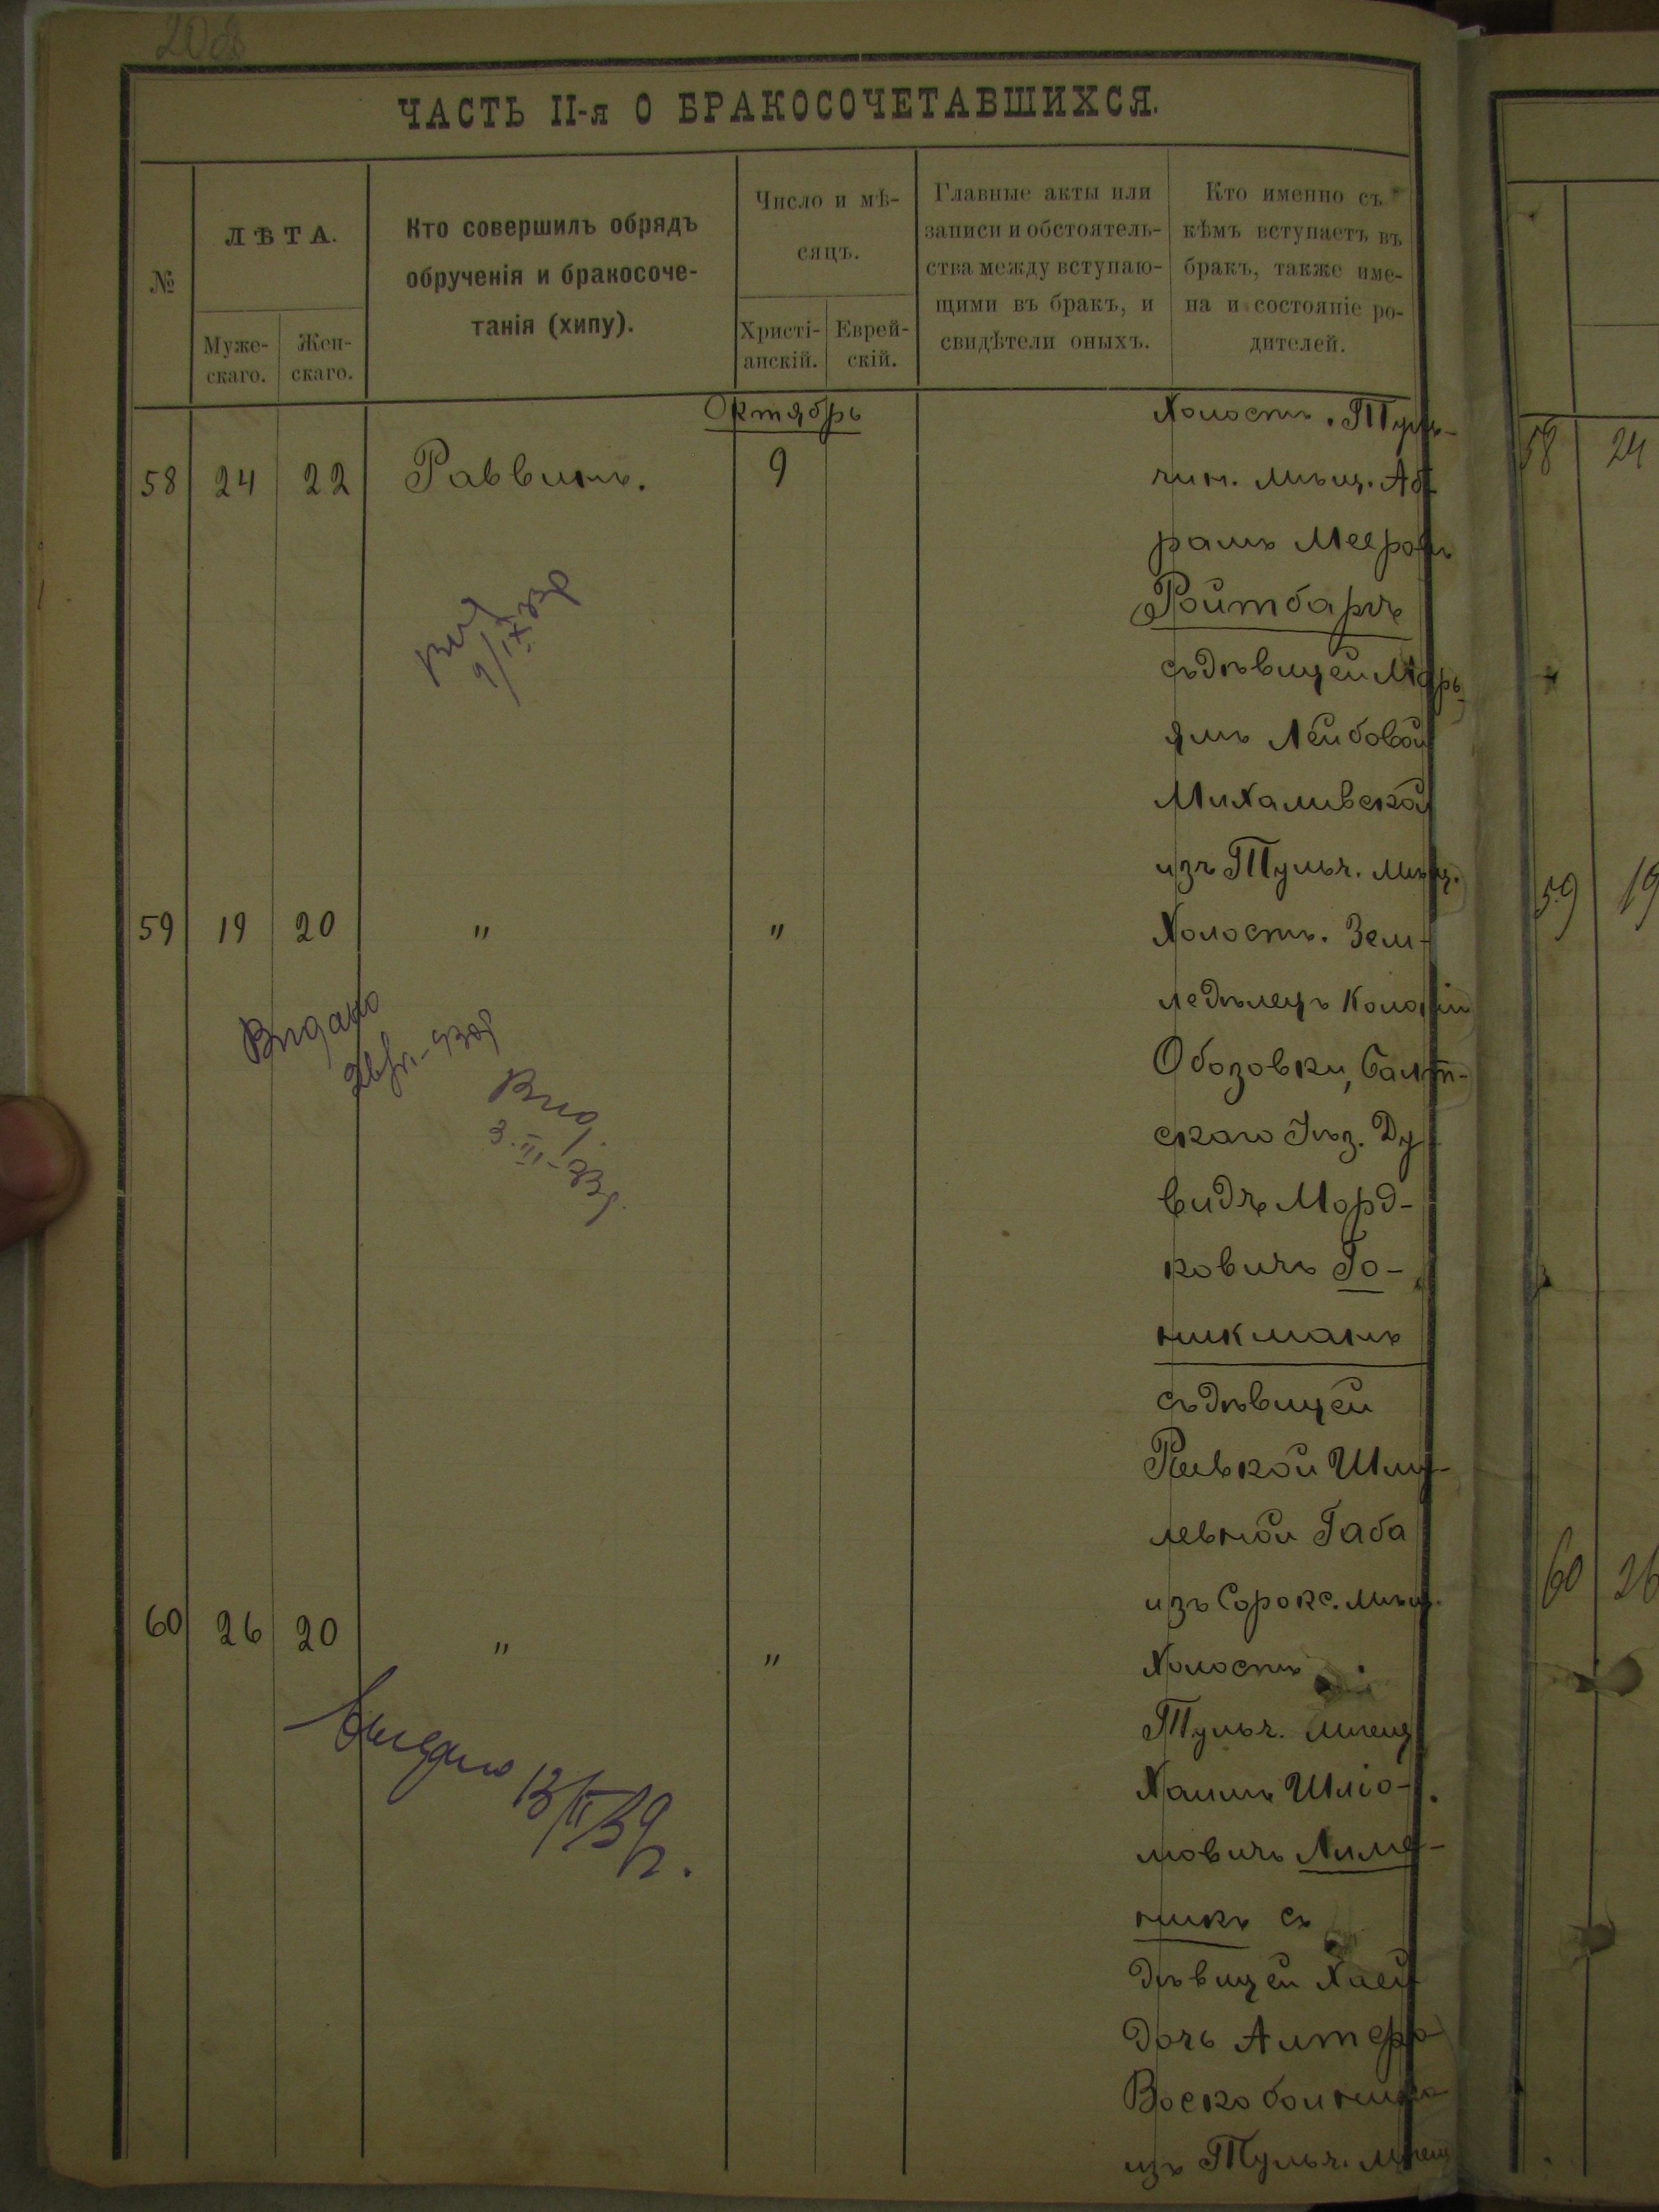 20об
ЧАСТЬ II-я О БРАКОСОЧЕТАВШИХСЯ.
№
ЛѢТА.
Муже-
скаго.
Жен-
скаго.
Кто совершилъ обрядъ
обрученія и бракосоче-
танія (хипу).
Число и мѣ-
сяцъ.
Христі-
анскій.
Еврей-
скій.
Главные акты или
записи и обстоятель-
ства между вступаю-
щими въ бракъ, и
свидѣтели оныхъ.
Кто именно съ
кѣмъ вступаетъ въ
бракъ, также име-
на и состояніе ро-
дителей.
Октябрь
58 24 22 Раввинъ. 9
Холостъ.
чин. мѣщ. Аб
рамъ Мееровъ
Ройтбаръ
съ дѣвицей Марь
ямъ Лейбовой
Михаливской
изъ Тульч. мѣщ.
59 19 20 " "
Холостъ. Зем-
ледѣлецъ Колоніи
Обозовки, Балт-
скаго Уѣз. Ду
видъ Морд-
ковичъ Го-
никманъ
съ дѣвицей
Ривкой Шму-
левной Габа
изъ Сорокс. мѣщ.
60 26 20 " "
Холостъ
Тульч. мѣщ
Хаимъ Шліо-
мовичъ Лиме-
никъ съ
дѣвицей Хаей
дочь Алтера
Воскобойника
изъ Тульч. мѣщ
Вид
9/IX
Видано
Вид.
3.II-33р.
Выдано 13/II 39г.
58 24
59 19
60 26